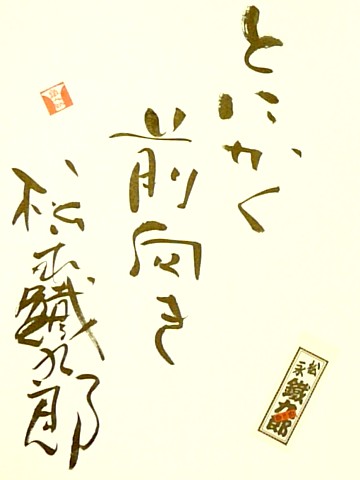 とにかく
前向き
松永鐵九郎
松永
鐵九郎